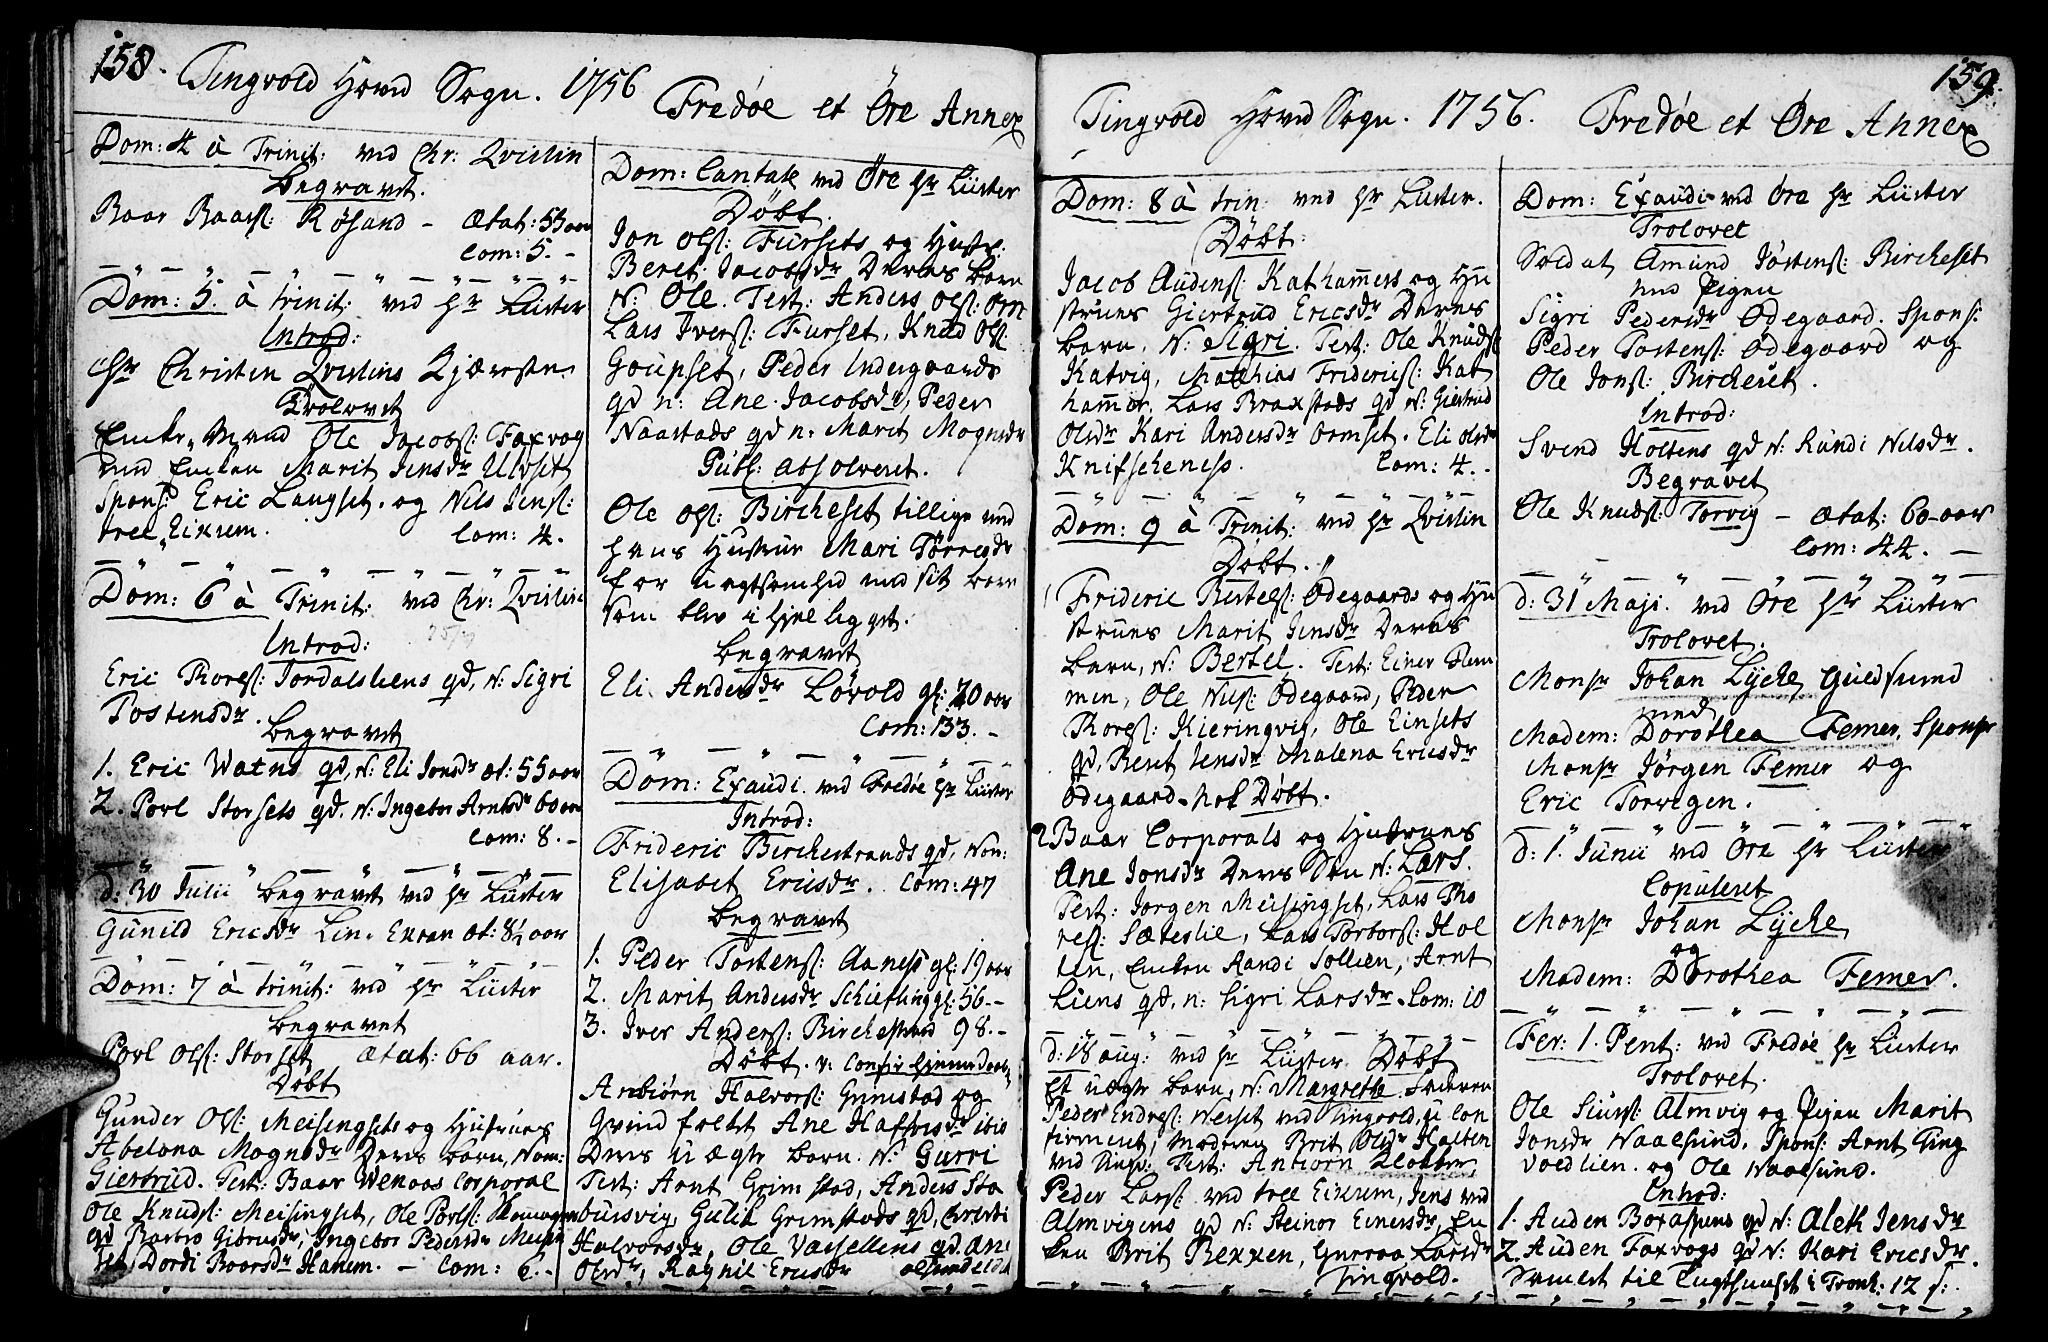 158.
Tingvold Hoved Sogn. 1756
Fredøe et Öre Annex
Dom: 4 à Trinit: ved Chr: Qvislin
Begravet.
Baar Baarsl: Røsand - Ætat: 55 aar
Com: 5. -
Dom: 5. à trinit: ved Hr Lüster
Introd:
Hr Christen Qvislins Kjæreste
Trolovet
Enke Mand Ole Jacobsl: Faxvog
med Enken Marit Jensdr Ulvset
Spons: Eric Langset. og Nils Jensl:
tree Eixrem. Com: 4.
Dom: 6 à Trinit: ved Chr: Qvislin
Introd:
Eric Thoresl: Jordalsliens qd, N: Sigri
Tostensdr.
Begravet
1. Eric Watns qd, N: Eli Jonsdr æt: 55 aar
2. Povl Storsets qd. N: Ingebor Arntsdr 60 aar
Com: 8. -
d: 30 Julii Begravet ved Hr Lüster
Gunild Ericsdr Lin. Exran æt: 8½ aar
Dom: 7 à trinit: ved Hr Lüster
Begravet
Povl Olsl: Storset Ætat: 66 aar.
Døbt
Gunder Olsl: Meisingsets og Hustrues
Abelona Mognsdr Deres Barn, Nom:
Giertrud. Test: Baar Wenaas Corporal
Ole Knudsl: Meisingset, Ole Povlsl:
qd Barbro Gibrusdr, Ingebor Pedersdr Meisin
set Dordi Baarsdr Hanem. - Com: 6. -
Dom: Cantate ved Øre Hr Lüster
Døbt.
Jon Olsl: Fursets og Hustr:
Beret Jacobsdr Deres Barn
N: Ole. Test: Anders Olsl: Orn
Lars Iversl: Furset, Knud Olsl
Goupset, Peder Indergaards
qd n: Ane Jacobsdr, Peder
Naastads qd n: Marit Mognsdr
Publ: absolveret.
Ole Olsl: Bircheset tillige med
hans Hustrue Mari Torresdr
for uagtsomhed med sit Barn
som blev ihjel ligget.
Begravet
Eli Andersdr Lövold gl: 20 aar
Com: 133. -
Dom: Exaudi. ved Fredöe Hr Lüster
Introd:
Frideric Birchestrands qd, Nom:
Elisabet Ericsdr. Com: 47
Begravet
1. Peder Tostensl: Aaness gl: 19 aar
2. Marit Andersdr Schiefling gl: 56 --
3. Iver Andersl: Birchestrand 98. -
Døbt. v: Confir: hiemmedøbt
Anbiörn Halvorsl: Grimstad og
Qvindfolket Ane Haftorsdr ibid
Deres uægte Barn. N: Gurri
Test: Arnt Grimstad, Anders Sta
bursvig, Gulik Grimstads qd, Cirersti
Halvorsdr, Ole Vassellens qd. Ane
Olsdr, Ragnil Ericsdr
159.
Tingvold Hoved Sogn. 1756.
Fredøe et Øre Annex
Dom: 8 à trin: ved Hr Lüster.
Døbt:
Jacob Audensl: Kathammers og Hu
strues Giertrud Ericsdr Deres
Barn, N: Sigri. Test: Ole Knudsl
Katvig, Matthias Fridericsl: Kat
hammer, Lars Braxstads qd N: Giertrud
Olsdr Kari Andersdr Ormset. Eli Olsdr
Knifscheness. Com: 4. -
Dom: 9 à Trinit: ved Hr Qvislin
Døbt.
1 Frideric Bertelsl: Ødegaards og Hu
strues Marit Jensdr Deres
Barn, N: Bertel. Test: Einer Flem
men, Ole Nilsl: Ødegaard, Peder
Thoresl: Kieringvig, Ole Einsets
qd, Beret Jensdr Malena Ericsdr
Ødegaard. Nok Døbt.
2 Baar Corporals og Hustrues
Ane Jonsdr Deres Søn N: Lars.
Test: Jorgen Meisingset, Lars Tho
resl: Sæteslie, Lars Torborsl: Hol
ten, Enken Randi Sollien, Arnt
Liens qd, n: Sigri Larsdr. Com: 10
d: 18 aug: ved Hr Lüster Døbt
Et uægte Barn, N: Margrette. Faderen
Peder Endresl: Neeset ved Tingvold, u Con
firmeret, Moderen Brit Olsdr Halten
ved Tingv: Test: Anbiörn Klokker,
Peder Larsl: ved tree Eixrem, Jens ved
Almvigens qd N: Steinor Einersdr, En
ken Brit Bexxen, Guroa Larsdr
Tingvold.
Dom: Exaudi ved Øre Hr Lüster
Trolovet
Soldat Amund Jostensl: Bircheset
med Pigen
Sigri Pedersdr Ødegaard. Spons:
Peder Tostensl: Ødegaard og
Ole Jonsl: Bircheset.
Introd:
Svend Holtens qd N: Rundi Nilsdr.
Begravet
Ole Knudsl: Torvig - Ætat: 60 aar
Com: 44. -
d: 31 Maji. ved Øre Hr Lüster
Trolovet.
Monsr Johan Lyche Guldsmed
med
Madem: Dorothea Femer, Sponsr
Monsr Jörgen Femer og
Eric Torvigen.
d: 1. Junii ved Øre Hr Lüster
Copuleret
Monsr Johan Lyche
og
Madem: Dorothea Femer.
Fer: 1. Pent: ved Fredøe Hr Lüster
Trolovet.
Ole Siursl: Almvig og Pigen Marit
Jonsdr Naalsund, Spons: Arnt Ting
voedlien. og Ole Naalsund.
Introd:
1. Auden Boxaspuns qd N: Aleth Jensdr
2. Auden Faxvogs qd N: Kari Ericsdr.
Samlet til Tugthuuset i Tronh: 12 s: